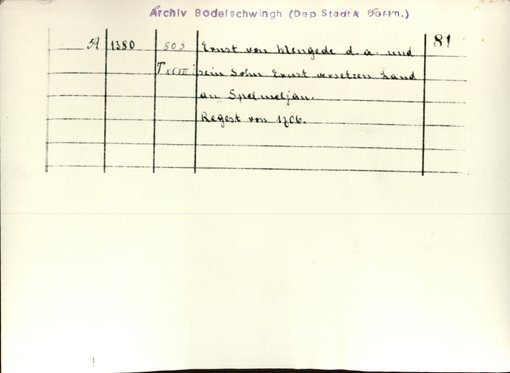 Archiv Bodelschwingh (Dep Stadt A Dortm.)
1380 803 Ernst von Mengede d. a. und 81
sein Sohn Ernst versetzen Land
an Speimeljan.
Regest von 1706.